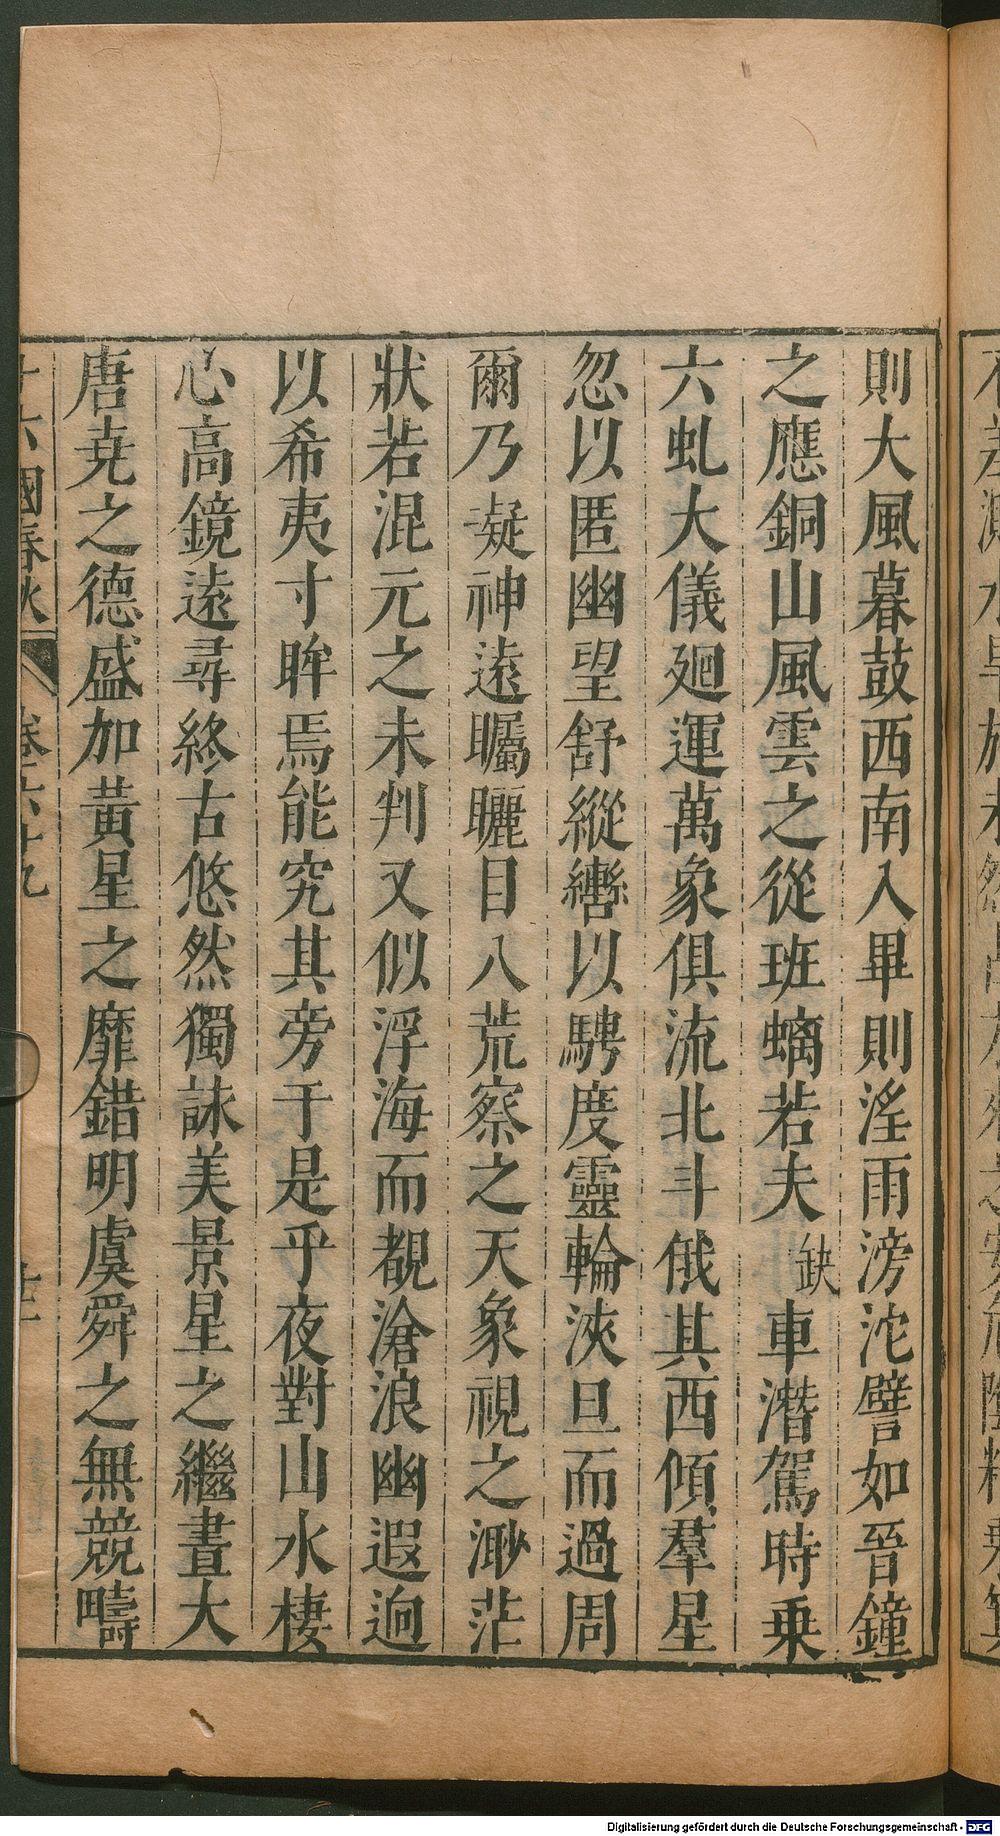 則大風暮鼓西南入畢則淫雨滂沱譬如晉鐘
之應銅山風雲之從班螭若夫缺車潛駕時乗
六虬大儀廻運萬象俱流北斗俄其西傾羣星
忽以匿幽望舒縱轡以騁度靈輪浹旦而過周
爾乃凝神遠矚曬目八荒察之天象視之渺茫
狀若混元之未判又似浮海而覩滄浪幽遐逈
以希夷寸眸焉能究其旁于是乎夜對山水棲
心高鏡遠尋終古悠然獨詠美景星之繼晝大
唐尭之德盛加黃星之靡錯明虞舜之無競疇
十六國春秋 卷六十九
Digitalisierung gefördert durch die Deutsche Forschungsgemeinschaft - DFG